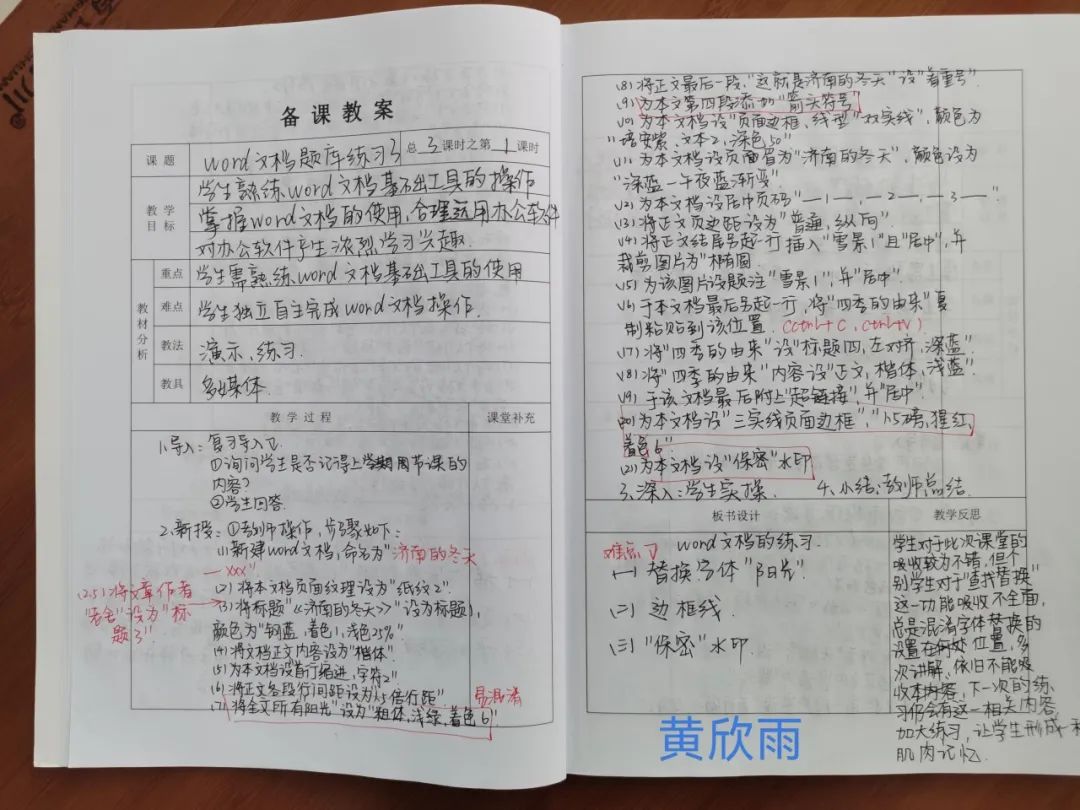 备课教案
课题 word文档题库练习3 总3课时之第1课时
教学目标 学生熟练word文档基础工具的操作
掌握word文档的使用,合理运用办公软件
对办公软件产生浓烈学习兴趣.
教材分析
重点 学生需熟练word文档基础工具的使用
难点 学生独立自主完成word文档操作.
教法 演示、练习.
教具 多媒体.
教学过程 课堂补充
1.导入: 复习导入
①询问学生是否记得上周节课的
内容?
②学生回答.
2.新授: ①教师操作,步骤如下:
(1)新建word文档,命名为"济南的冬天
—xxx"
(2)将本文档页面纹理设为"纸纹2".
(2.5)将文章作者
"老舍"设为"标
题3".
(3)将标题"《济南的冬天》"设为标题1,
颜色为"钢蓝,着色1,浅色25%".
(4)将文档正文内容设为"楷体".
(5)为本文档设首行缩进,字符2"
(6)将正文各段行间距设为"1.5倍行距". 易混淆
(7)将全文所有"阳光"设为"粗体,浅绿,着色6"
(8)将正文最后一段,"这就是济南的冬天"设"着重号"
(9)为本文第四段添加"箭头符号"
(10)为本文档设"页面边框,线型"双实线",颜色为
"培安紫,文本2,深色50"
(11)为本文档设页面眉为"济南的冬天",颜色设为
"深蓝—午夜蓝渐变".
(12)为本文档设居中页码"—1—,—2—,—3—".
(13)将正文页边距设为"普通,纵向".
(14)将正文结尾另起一行插入"雪景1"且"居中",并
裁剪图片为"椭圆.
(15)为该图片设题注"雪景1",并"居中".
(16)于本文档最后另起一行,将"四季的由来"复
制粘贴到该位置. (ctrl+c,ctrl+v)
(17)将"四季的由来"设"标题四,左对齐,深蓝".
(18)将"四季的由来"内容设"正文,楷体,浅蓝".
(19)于该文档最后附上"超链接",并"居中".
(20)为本文档设"三实线页面边框","1.5磅,猩红,
着色6".
(21)为本文档设"保密"水印
3.深入:学生实操. 4.小结:教师总结.
板书设计 教学反思
难点 word文档的练习.
(一)替换字体"阳光".
(二)边框线.
(三)"保密"水印.
学生对于此次课堂的
吸收较为不错,但个
别学生对于"查找替换"
这一功能吸收不全面,
总是混淆字体替换的
设置在何处位置,多
次讲解,依旧不能吸
收本内容,下一次的练
习仍会有这一相关内容
加大练习,让学生形成一种
肌肉记忆.
黄欣雨